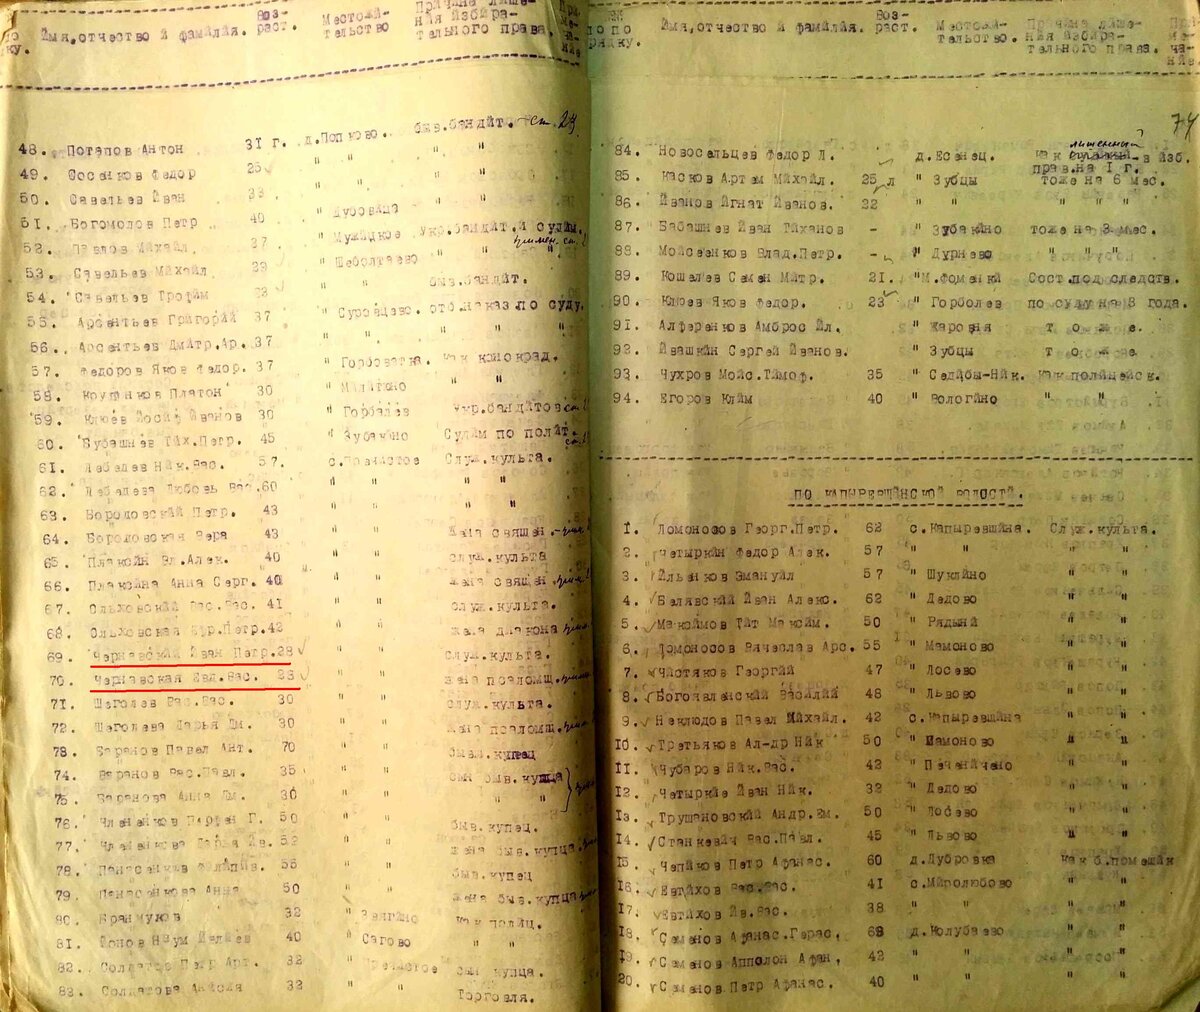 по
дку.
Имя,отчество и фамилия.
Воз-
раст.
Местожи-
тельство
Причина лише-
ния избира-
тельного права.
При-
ме-
ча-
ние
48. Потапов Антон 31 г. д.Попково. быв.бандит. ст.
49. Сосенков Федор 25 " " " "
50. Савельев Иван 33 " " " "
51. Богомолов Петр 40 " Дубовица " "
52. Павлов Михаил 27 " Мужицкое Укр.бандит.и судим.
53. Савельев Михаил 23 " Шеболтаево " "
54. Савельев Трофим 23 " " быв.бандит.
55. Арсентьев Григорий 37 " Суровцево. отб.наказ.по суду.
56. Арсентьев Дмитр.Ар. 37 " " " "
57. Федоров Яков Федор. 37 " Горбоватка. как конокрад.
58. Крупенков Платон 30 " " "
59. Клюев Иосиф Иванов 30 " Горбалев Укр.бандитов
60. Бубашнев Тих.Петр. 45 " Зубакино Судим по полит.
61. Лебедев Ник.Вас. 57. с.Пречистое Служ.культа.
62. Лебедева Любовь Вас.60 " " " "
63. Бороловский Петр. 43 " " " "
64. Бороловская Вера 43 " " жена священ.
65. Плаксин Вл.Алек. 40 " " служ.культа
66. Плаксина Анна Серг. 40 " " жена священ.
67. Ольховский Вас.Вас. 41 " " служ.культа.
68. Ольховская Петр.42 " " жена диакона
69. Чернавский Иван Петр.28 " " служ.культа.
70. Чернавская Евд.Вас. 23 " " жена псаломщ.
71. Шеголев Вас.Вас. 30 " " служ.культа.
72. Шеголева Дарья Дм. 30 " " жена псаломщ.
73. Баранов Павел Ант. 70 " " бывш.купец
74. Баранов Вас.Павл. 35 " " сын быв.купца
75. Баранова Анна Дм. 30 " " " "
76. Члененков Парфен Г. 50 " " быв.купец.
77. Члененкова Дарья Ив. 52 " " жена быв.купца.
78. Панасенков Филипп. 55 " " быв.купец
79. Панасенкова Анна 50 " " жена быв.купца
80. Бранмухов 32 " Звягино как полиц.
81. Попов Наум 40 " Сагово " "
82. Солдатов Петр Арт. 32 " Пречистое сын купца.
83. Солдатова Анисия 32 " " Торговля.
74
по по
рядку.
Имя,отчество и фамилия.
Воз-
раст.
Местожи-
тельство.
Причина лише-
ния избира-
тельного права.
При-
ме-
ча-
ние.
84. Новосельцев Федор Л. д.Есенец. как лишенный в изб.
прав.на I г.
85. Касков Артем Михайл. 25 л " Зубцы тоже на 6 мес.
86. Иванов Игнат Иванов. 22 " " " " "
87. Бабашнев Иван Тиханов - " Зубакино тоже на 3 мес.
88. Мойсеенков Влад.Петр. - " Дурнево " " "
89. Кошелев Семен Митр. 21. "М.Фоменки Сост.под следств.
90. Клюев Яков Федор. 23 " Горболев по суду на 8 года.
91. Алференков Амброс Ил. " Жаровня т о ж е.
92. Ивашкин Сергей Иванов. " Зубцы т о ж е
93. Чухров Мойс.Тимоф. 35 " Седибы-Ник. как полицейск.
94. Егоров Клим 40 " Вологино " "
ПО КАПЫРЕВЩИНСКОЙ ВОЛОСТИ.
1. Ломоносов Георг.Петр. 62 с.Капыревщина. Служ.культа.
2. Четыркин Федор Алек. 57 " " " "
3. Ильенков Эмануил 57 " Шуклино " "
4. Белявский Иван Алекс. 62 " Дедово " "
5. Максимов Тит Максим. 50 " Рядыни " "
6. Ломоносов Вячеслав Арс. 55 " Мамоново " "
7. Чистяков Георгий 47 " Лосево " "
8. Богоявленский Василий 48 " Львово " "
9. Неклюдов Павел Михайл. 42 с.Капыревщина " "
10. Третьяков Ал-др Ник 50 " Мамоново " "
11. Чубаров Ник.Вас. 42 " Печеничено " "
12. Четыркин Иван Ник. 32 " Дедово " "
13. Трушановский Андр.Ем. 50 " Лосево " "
14. Станкевич Вас.Павл. 45 " Львово " "
15. Чепиков Петр Афанас. 60 д.Дубровка как б.помещик
16. Евтихов Вас.Вас. 41 с.Миролюбово " "
17. Евтихов Ив.Вас. 38 " " " "
18. Семенов Афанас.Герас. 68 д.Колубаево " "
19. Семенов Апполон Афан, 42 " " " "
20. Семенов Петр Афанас. 40 " " " "